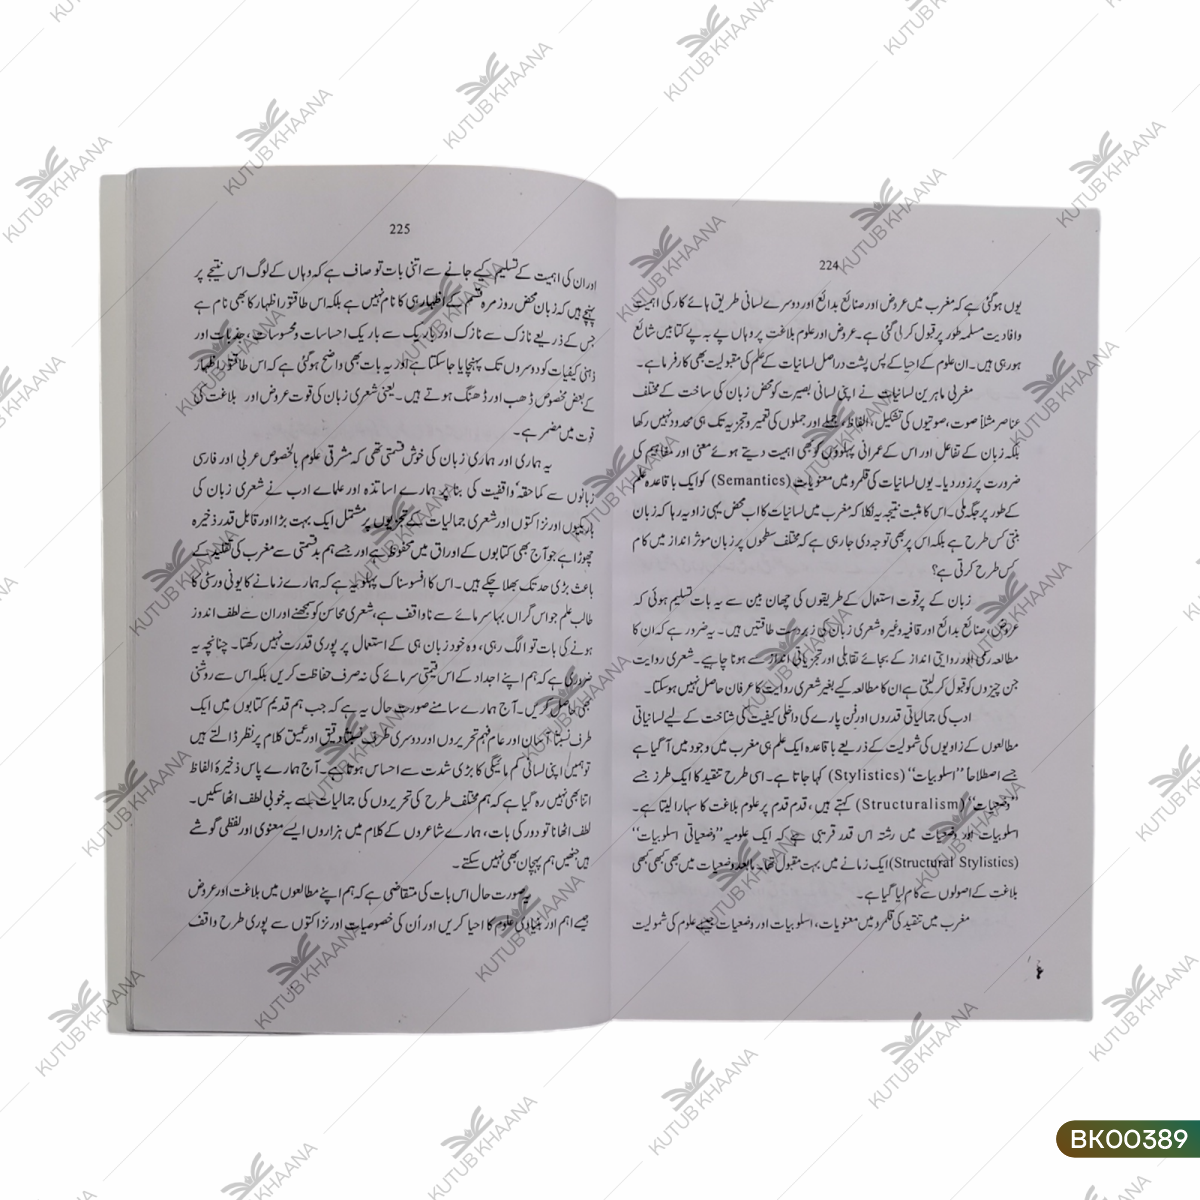 224
یوں ہوگئی ہے کہ مغرب میں عروض اور صنائع بدائع اور دوسرے لسانی طریق ہائے کار کی اہمیت
و افادیت مسلمہ طور پر قبول کرلی گئی ہے۔ عروض اور علوم بلاغت پر وہاں پے بہ پے کتابیں شائع
ہو رہی ہیں۔ ان علوم کے احیا کے پس پشت دراصل لسانیات کے علم کی مقبولیت بھی کارفرما ہے۔
مغربی ماہرین لسانیات نے اپنی لسانی بصیرت کو محض زبان کی ساخت کے مختلف
عناصر مثلاً صوت، صوتیوں کی تشکیل، الفاظ، جملے اور جملوں کی تعمیر و تجزیہ تک ہی محدود نہیں رکھا
بلکہ زبان کے تفاعل اور اس کے عمرانی پہلوؤں کو بھی اہمیت دیتے ہوئے معنی اور مفاہیم کی
ضرورت پر زور دیا۔ یوں لسانیات کی قلمرو میں معنویات (Semantics) کو ایک باقاعدہ علم
کے طور پر جگہ ملی۔ اس کا مثبت نتیجہ یہ نکلا کہ مغرب میں لسانیات کا اب محض یہی زاویہ نہ رہا کہ زبان
بنتی کس طرح ہے بلکہ اس پر بھی توجہ دی جا رہی ہے کہ مختلف سطحوں پر زبان موثر انداز میں کام
کس طرح کرتی ہے؟
زبان کے پر قوت استعمال کے طریقوں کی چھان بین سے یہ بات تسلیم ہوئی کہ
عروض، صنائع بدائع اور قافیہ وغیرہ شعری زبان کی زبردست طاقتیں ہیں۔ یہ ضرور ہے کہ ان کا
مطالعہ رسمی اور روایتی انداز کے بجائے تقابلی اور تجزیاتی انداز سے ہونا چاہیے۔ شعری روایت
جن چیزوں کو قبول کر لیتی ہے ان کا مطالعہ کیے بغیر شعری روایت کا عرفان حاصل نہیں ہو سکتا۔
ادب کی جمالیاتی قدروں اور فن پارے کی داخلی کیفیت کی شناخت کے لیے لسانیاتی
مطالعوں کے زاویوں کی شمولیت کے ذریعے باقاعدہ ایک علم ہی مغرب میں وجود میں آ گیا ہے
جسے اصطلاحاً ''اسلوبیات'' (Stylistics) کہا جاتا ہے۔ اسی طرح تنقید کا ایک طرز جسے
''وضعیات'' (Structuralism) کہتے ہیں، قدم قدم پر علوم بلاغت کا سہارا لیتا ہے۔
اسلوبیات اور وضعیات میں رشتہ اس قدر قریبی ہے کہ ایک علومیہ ''وضعیاتی اسلوبیات''
(Structural Stylistics) ایک زمانے میں بہت مقبول تھا۔ مابعد وضعیات میں بھی کبھی کبھی
بلاغت کے اصولوں سے کام لیا گیا ہے۔
مغرب میں تنقید کی قلمرو میں معنویات، اسلوبیات اور وضعیات جیسے علوم کی شمولیت
225
اور ان کی اہمیت کے تسلیم کیے جانے سے اتنی بات تو صاف ہے کہ وہاں کے لوگ اس نتیجے پر
پہنچے ہیں کہ زبان محض روزمرہ قسم کے اظہار ہی کا نام نہیں ہے بلکہ اس طاقتور اظہار کا بھی نام ہے
جس کے ذریعے نازک سے نازک اور باریک سے باریک احساسات و محسوسات، جذبات اور
ذہنی کیفیات کو دوسروں تک پہنچایا جا سکتا ہے اور یہ بات بھی واضح ہوگئی ہے کہ اس طاقتور اظہار
کے بعض مخصوص ڈھب اور ڈھنگ ہوتے ہیں۔ یعنی شعری زبان کی قوت عروض اور بلاغت کی
قوت میں مضمر ہے۔
یہ ہماری اور ہماری زبان کی خوش قسمتی تھی کہ مشرقی علوم بالخصوص عربی اور فارسی
زبانوں سے کماحقہٗ واقفیت کی بنا پر ہمارے اساتذہ اور علماے ادب نے شعری زبان کی
باریکیوں اور نزاکتوں اور شعری جمالیات کے تجزیوں پر مشتمل ایک بہت بڑا اور قابل قدر ذخیرہ
چھوڑا ہے جو آج بھی کتابوں کے اوراق میں محفوظ ہے اور جسے ہم بدقسمتی سے مغرب کی تقلید کے
باعث بڑی حد تک بھلا چکے ہیں۔ اس کا افسوسناک پہلو یہ ہے کہ ہمارے زمانے کا یونی ورسٹی کا
طالب علم جو اس گراں بہا سرمائے سے ناواقف ہے، شعری محاسن کو سمجھنے اور ان سے لطف اندوز
ہونے کی بات تو الگ رہی، وہ خود زبان ہی کے استعمال پر پوری قدرت نہیں رکھتا۔ چنانچہ یہ
ضروری ہے کہ ہم اپنے اجداد کے اس قیمتی سرمائے کی نہ صرف حفاظت کریں بلکہ اس سے روشنی
بھی حاصل کریں۔ آج ہمارے سامنے صورت حال یہ ہے کہ جب ہم قدیم کتابوں میں ایک
طرف نسبتاً آسان اور عام فہم تحریروں اور دوسری طرف نسبتاً دقیق اور عمیق کلام پر نظر ڈالتے ہیں
تو ہمیں اپنی لسانی کم مائیگی کا بڑی شدت سے احساس ہوتا ہے۔ آج ہمارے پاس ذخیرۂ الفاظ
اتنا بھی نہیں رہ گیا ہے کہ ہم مختلف طرح کی تحریروں کی جمالیات سے بہ خوبی لطف اٹھا سکیں۔
لطف اٹھانا تو دور کی بات، ہمارے شاعروں کے کلام میں ہزاروں ایسے معنوی اور لفظی گوشے
ہیں جنھیں ہم پہچان بھی نہیں سکتے۔
یہ صورت حال اس بات کی متقاضی ہے کہ ہم اپنے مطالعوں میں بلاغت اور عروض
جیسے اہم اور بنیادی علوم کا احیا کریں اور اُن کی خصوصیات اور نزاکتوں سے پوری طرح واقف
KUTUB KHAANA
BK00389